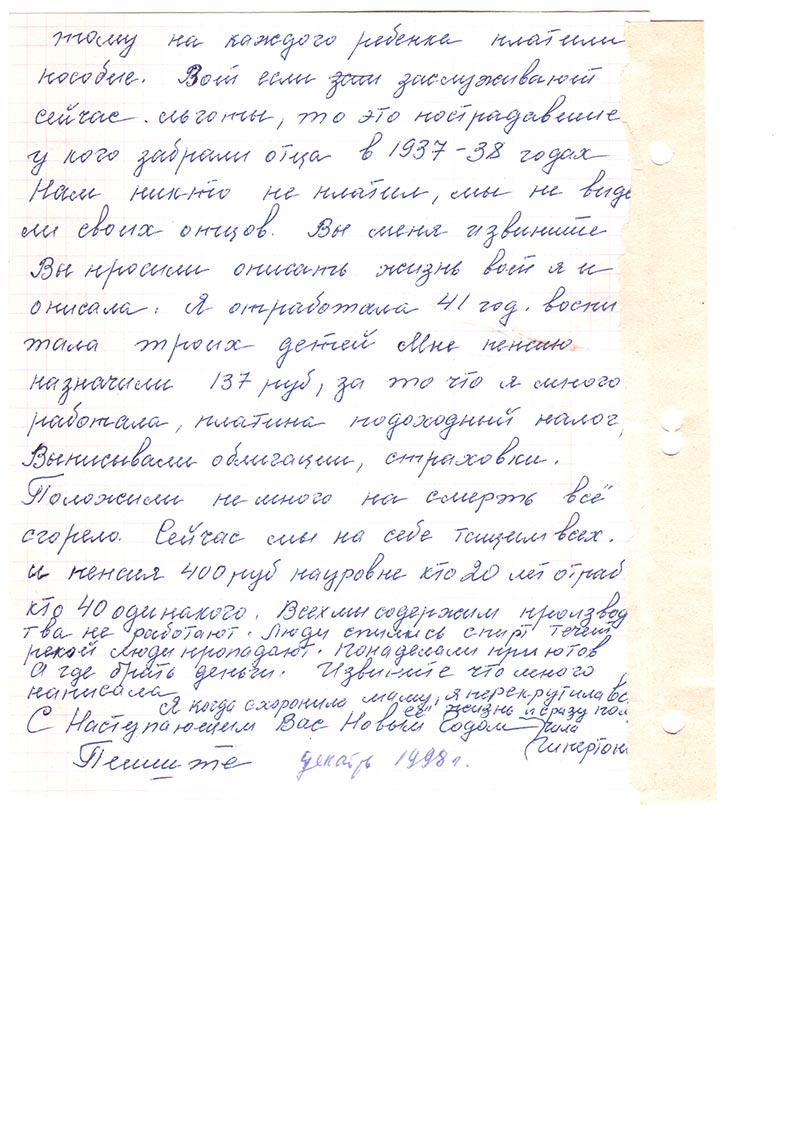 тому на каждого ребенка платили
пособие. Вот если заслуживают
сейчас льготы, то это пострадавшие
у кого забрали отца в 1937-38 годах
Нам никто не платил, мы не виде
ли своих отцов. Вы меня извините
Вы просили описать жизнь вот я и
описала. Я отработала 41 год. воспи
тала троих детей Мне пенсию
назначили 137 руб, за то что я много
работала, платина подоходный налог,
Выписывали облигации, страховки.
Положили немного на смерть всё
сгорело. Сейчас мы на себе тащем всех.
и пенсия 400 руб науровне кто 20 лет отраб
кто 40 одинакого. Всех мы содержим производ
тва не работают. Люди спились спирт течет
рекой люди пропадают. Понаделали приютов
А где брать деньги. Извините что много
написала
Я когда схоронила маму, я перекрутила вс
её жизнь и сразу пол
чила
С Наступающим Вас Новым Годом
Гипертон
Пешите декабрь 1998 г.